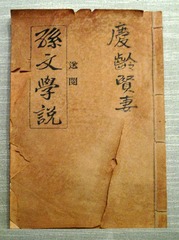 慶齡賢妻
逸閱
孫文學說